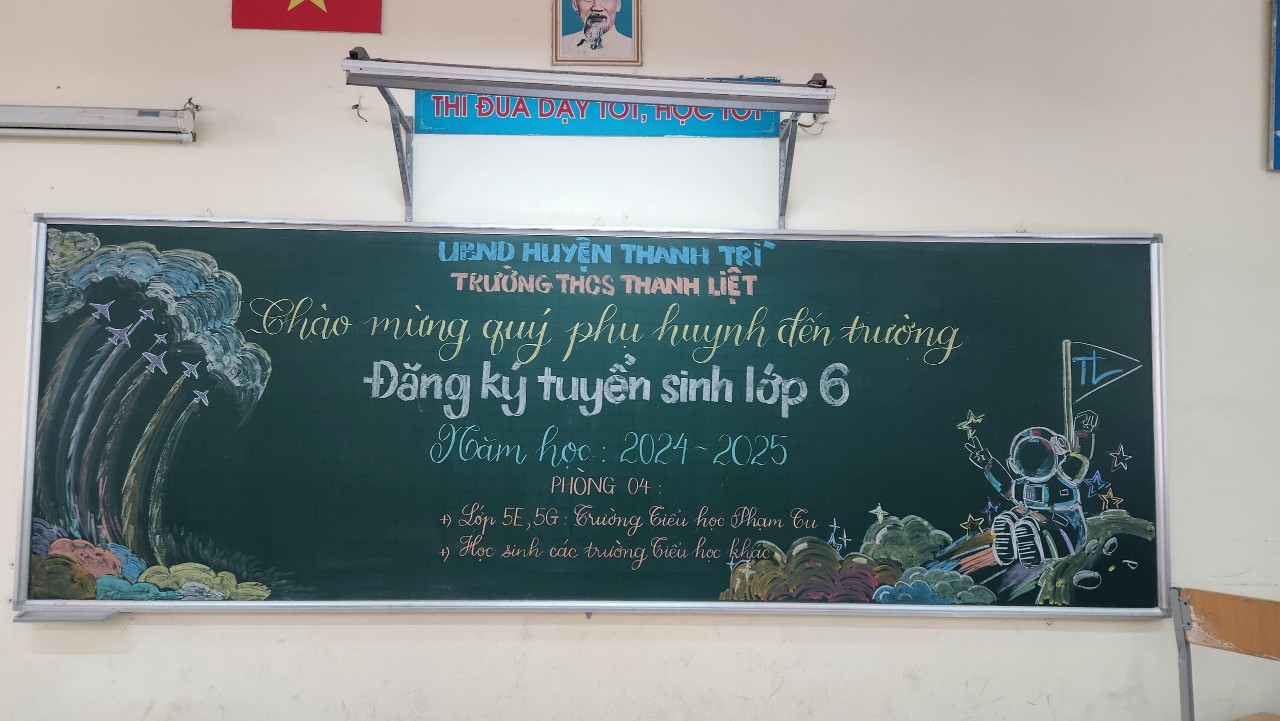 THI ĐUA DẠY TỐT, HỌC TỐT
UBND HUYỆN THANH TRÌ
TRƯỜNG THCS THANH LIỆT
Chào mừng quý phụ huynh đến trường
Đăng ký tuyển sinh lớp 6
Năm học: 2024~2025
PHÒNG 04:
+) Lớp 5E, 5G: Trường Tiểu học Phạm Tu
+) Học sinh các trường Tiểu học khác
TL